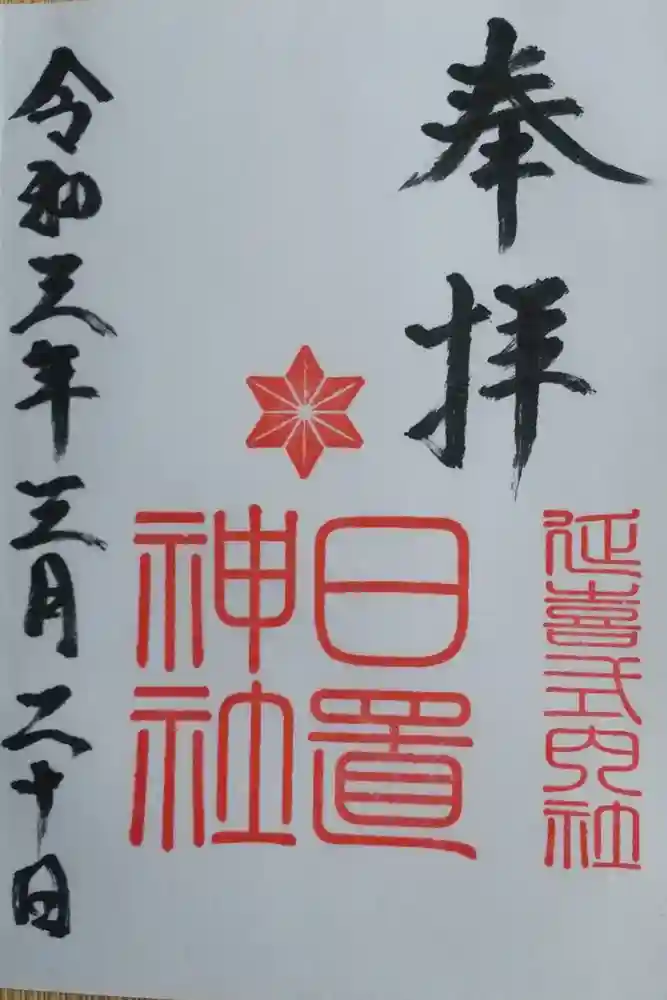 奉拝
延喜式内社
日置
神社
令和三年三月二十日